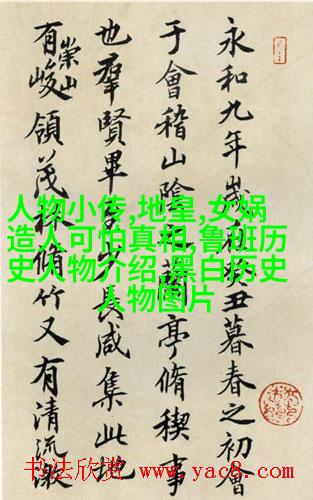 永和九年歲在癸丑暮春之初會
于會稽山陰之蘭亭脩稧事
也羣賢畢至少長咸集此地
有崇山峻領茂林脩竹又有清流激
人物小传,地皇,女娲
造人可怕真相,鲁班历
史人物介绍,黑白历史
人物图片
书法欣赏 www.yac8.com